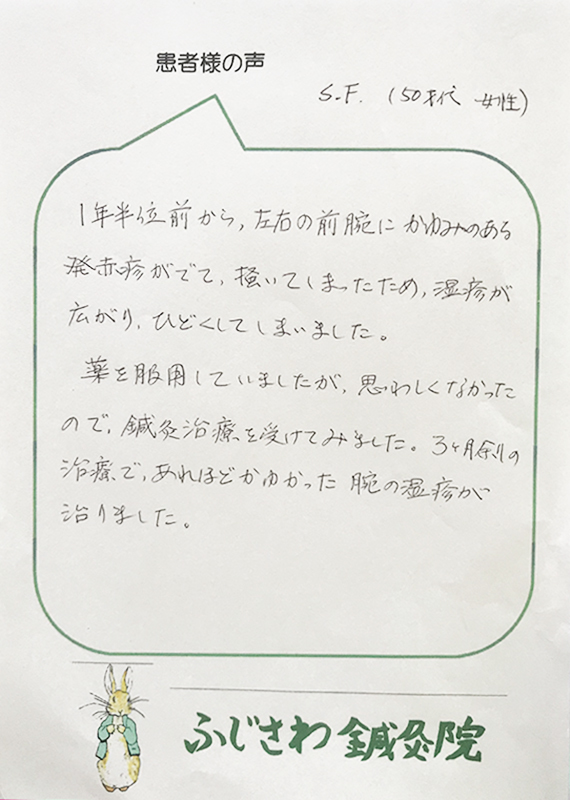 患者様の声
S.F. (50才代 女性)
1年半位前から,左右の前腕にかゆみのある
発赤疹がでて,掻いてしまったため,湿疹が
広がり,ひどくしてしまいました。
薬を服用していましたが,思わしくなかった
ので,鍼灸治療を受けてみました。3ヶ月余りの
治療で,あれほどかゆかった腕の湿疹が
治りました。
ふじさわ鍼灸院